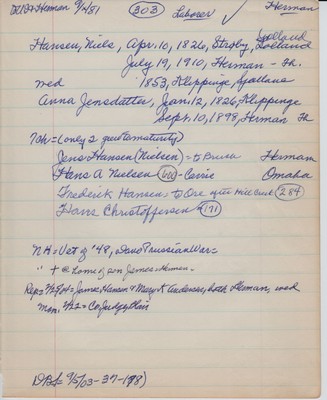 Herman 9/4/81 303 Laborer ✓ Herman
Hansen, Niels, Apr. 10, 1826, Stroby, Sjolland
July 19, 1910, Herman - Fh.
wed 1853, Klippinge, Sjolland
Anna Jensdatter, Jan. 12, 1826, Klippinge
Sept. 10, 1898, Herman Fh
7ch = (only 2 to maturity)
Jens Hansen (Nielsen) = to Herman
Hans A Nielsen = Omaha
Frederick Hansen = to Ore after Mill Creek 284
Hans Christoffersen = 171
NH = Vet of '48, Dano Prussian War =
" + @ home of son James = Herman
Reps = James Hansen & Mary K Andersen, both Herman, wed
Co Judge, Blair
DBL = 9/5/03 - 37 - 198)